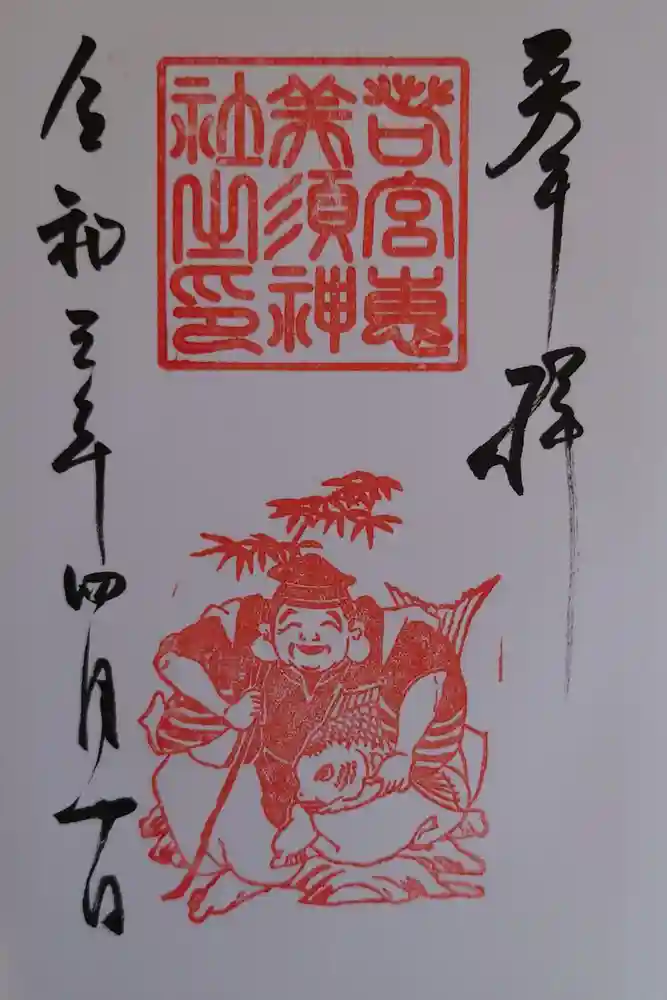 奉拝
若宮惠
美須神
社之印
令和三年四月一日